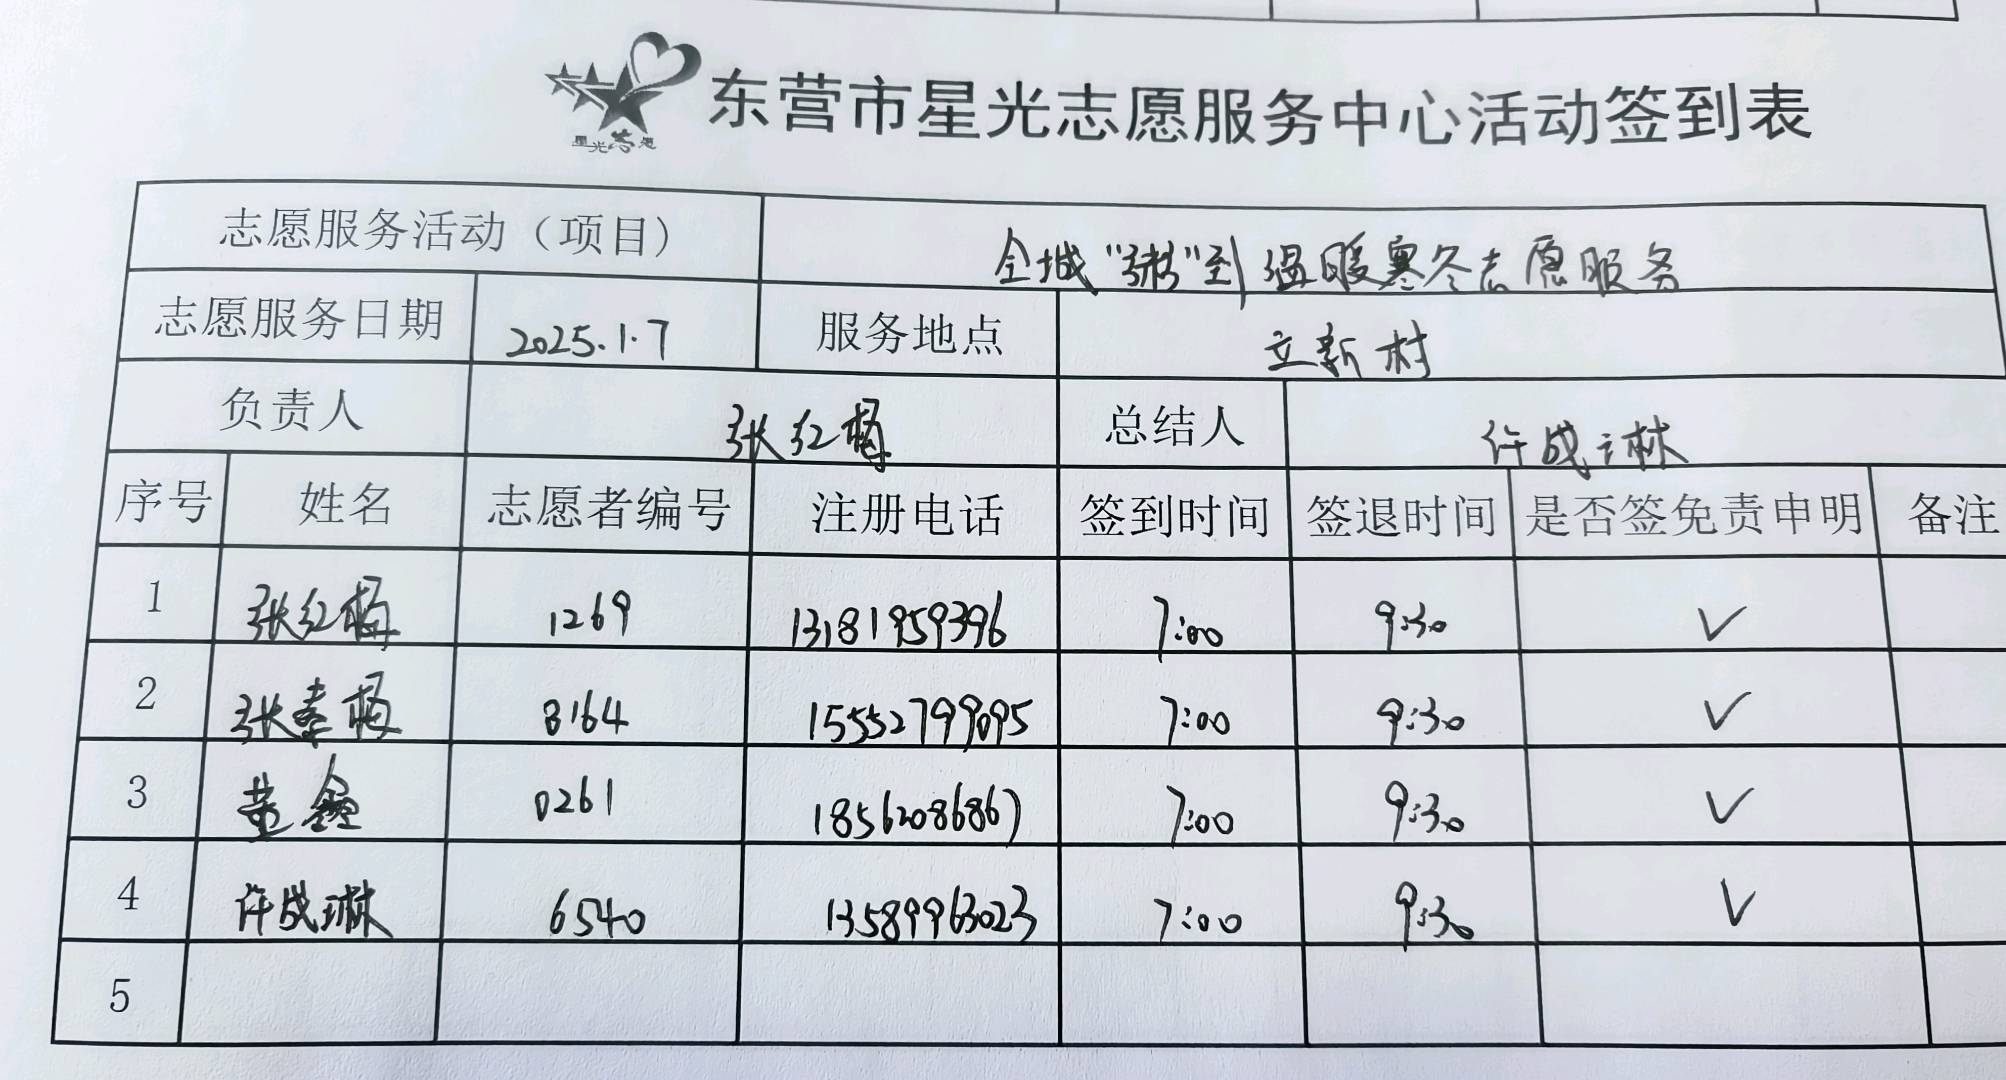 星光志愿
东营市星光志愿服务中心活动签到表
志愿服务活动（项目） 全城“粥”到温暖寒冬志愿服务
志愿服务日期 2025.1.7 服务地点 立新村
负责人 张红梅 总结人 许成琳
序号 姓名 志愿者编号 注册电话 签到时间 签退时间 是否签免责申明 备注
1 张红梅 1269 13181959396 7:00 9:30 ✓
2 张素梅 8164 15552799095 7:00 9:30 ✓
3 董鑫 0261 18562086867 7:00 9:30 ✓
4 许成琳 6540 13589963023 7:00 9:30 ✓
5